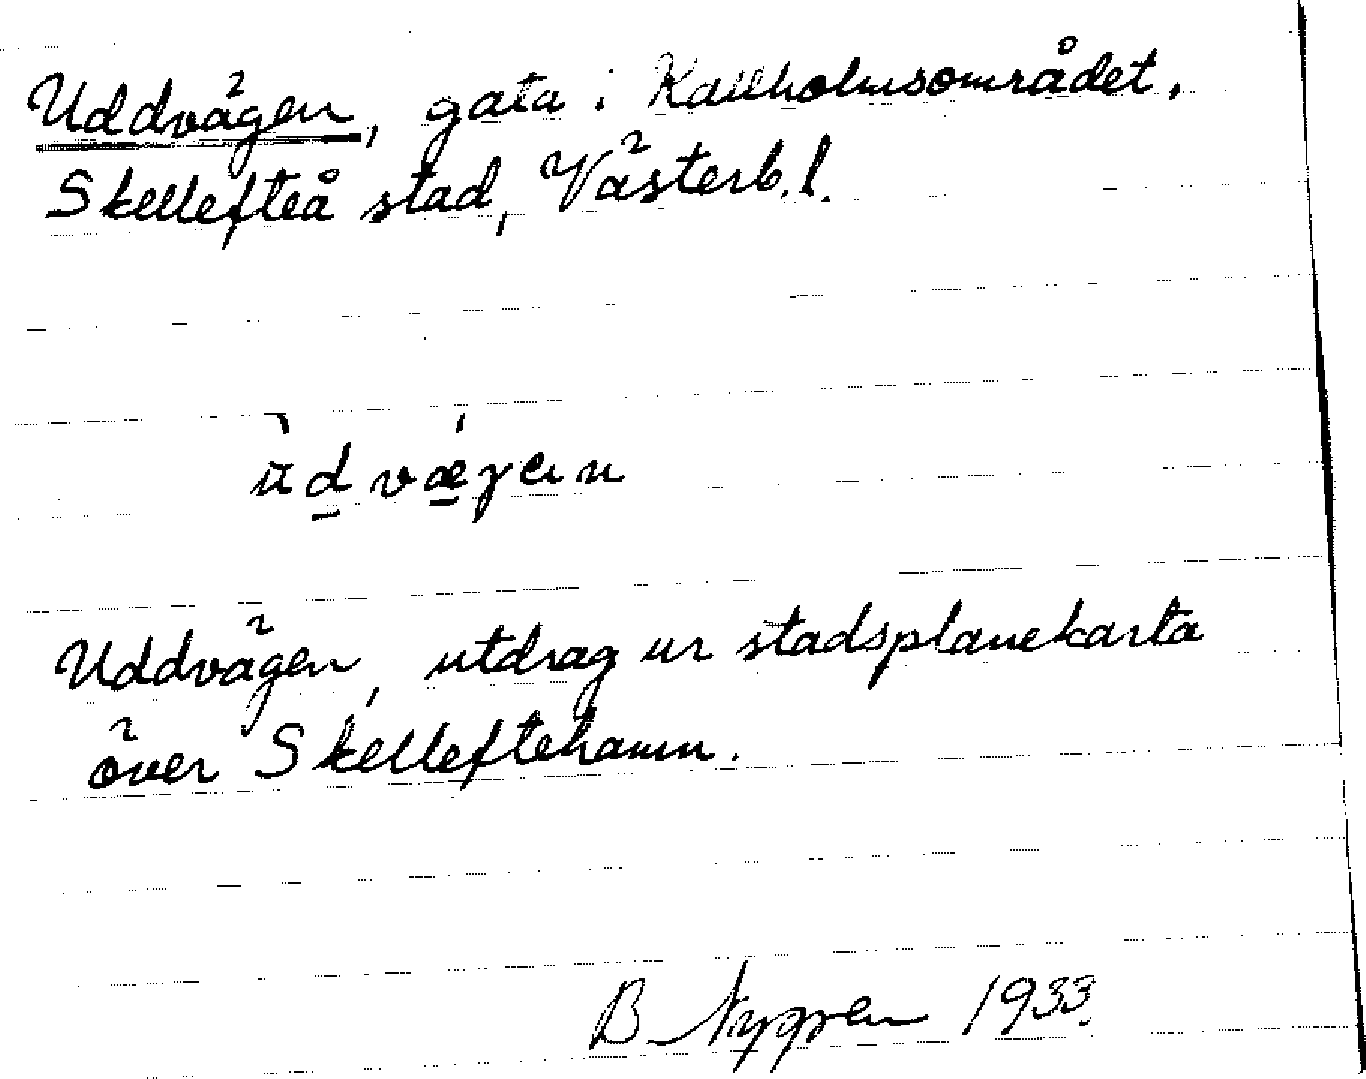 Uddvägen, gata i Kallholmsområdet,
Skellefteå stad, Västerb. l.
Uddvägen, utdrag ur stadsplanekarta
över Skelleftehamn.
B. Nygren 1933.